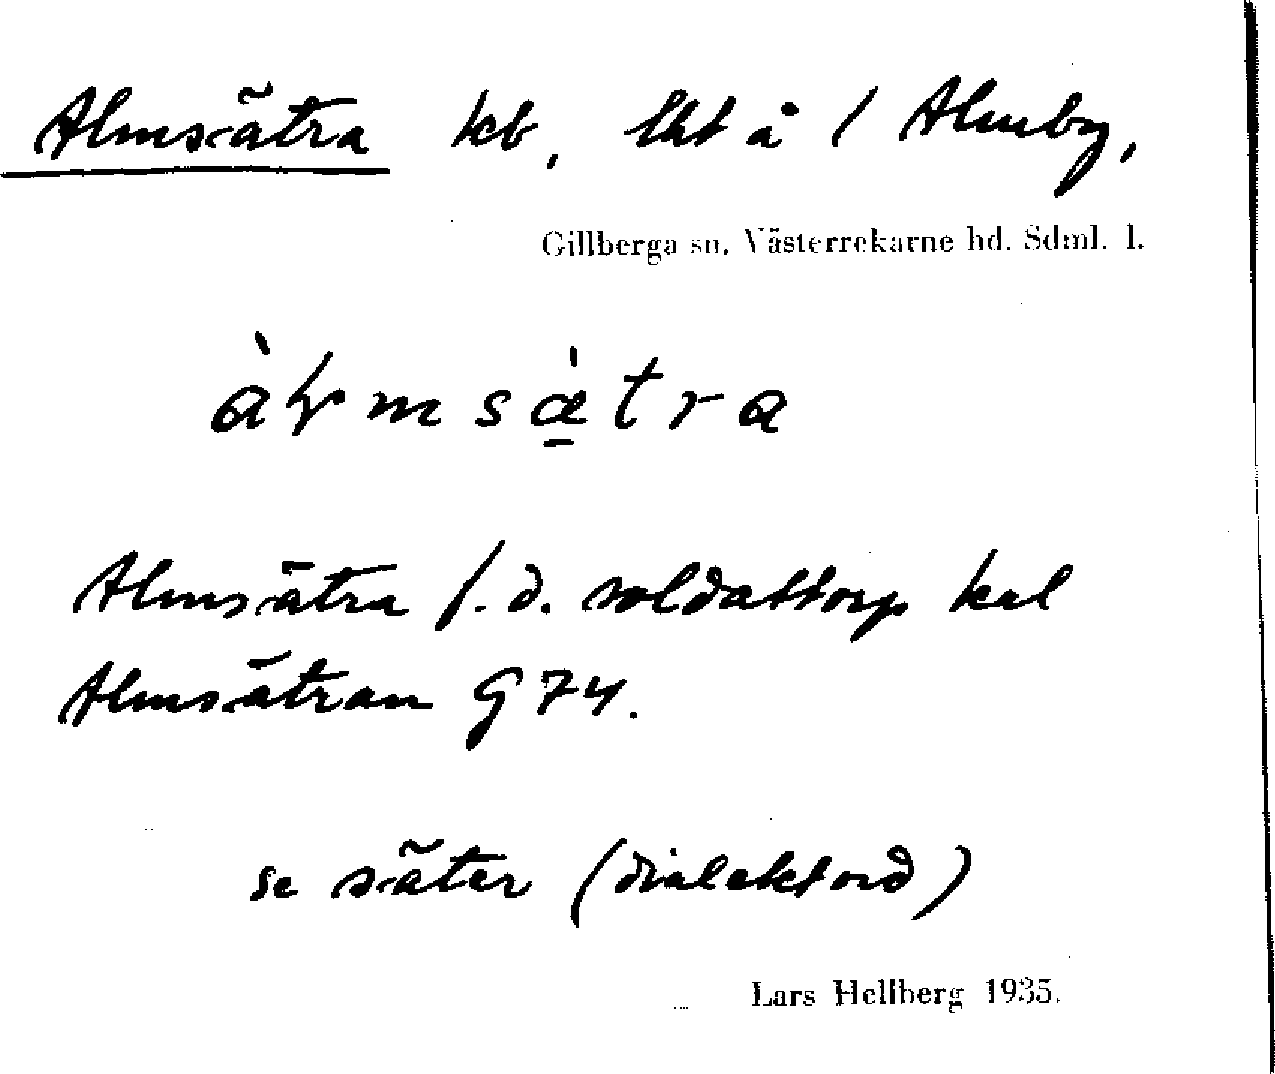 Almsätra kb, lht å / Almby,
Gillberga sn. Västerrekarne hd. Sdml. l.
msætra
Almsätra f.d. soldattorp kal
Almsätran G 74.
se säter (dialektord)
Lars Hellberg 1935.